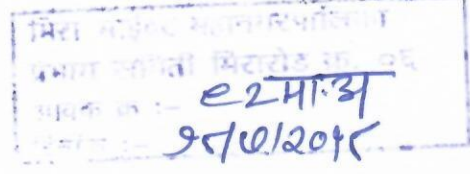 मिरा भाईंदर महानगरपालिका
प्रभाग समिती मिरारोड क्र. ०६
आवक क्र :- ९२मा.अ
दिनांक :- १८/७/२०१८